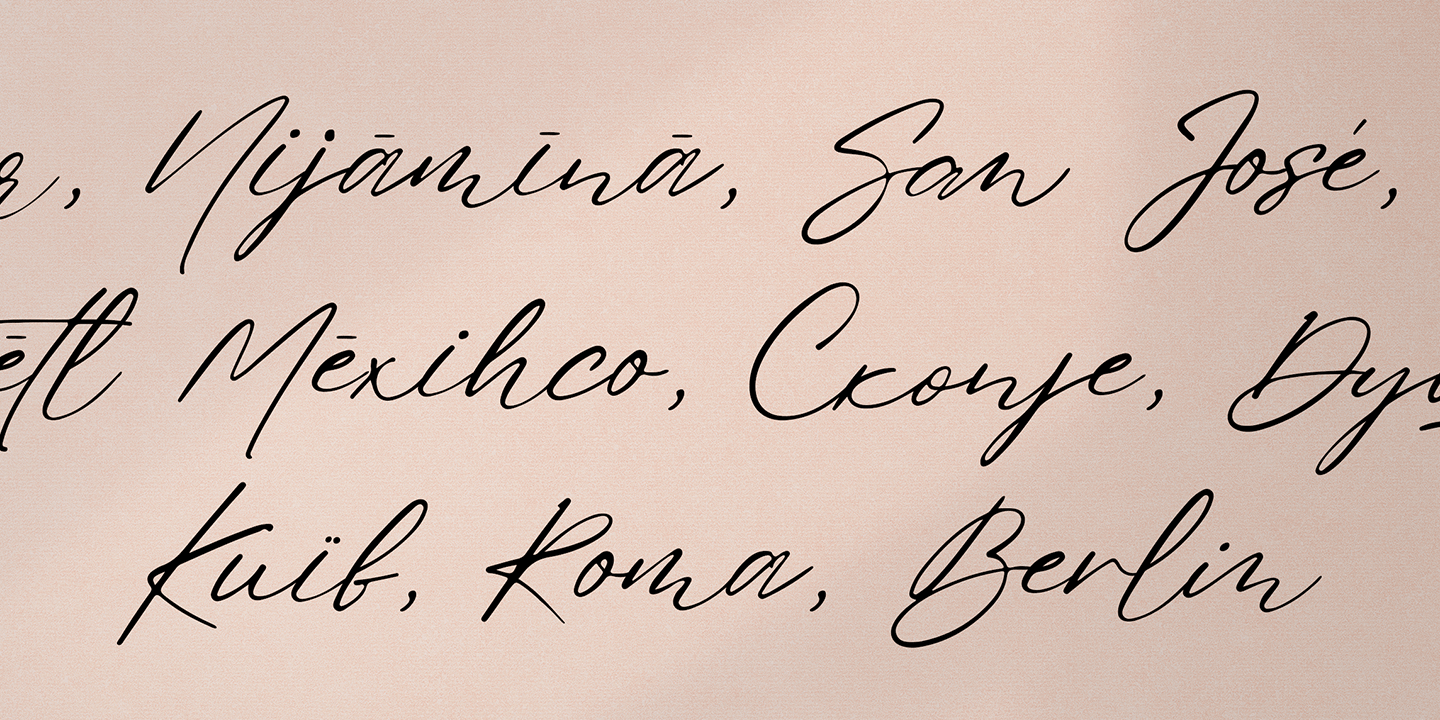 Nijāmīnā, San José,
Mēxihco, Скопје,
Київ, Roma, Berlin